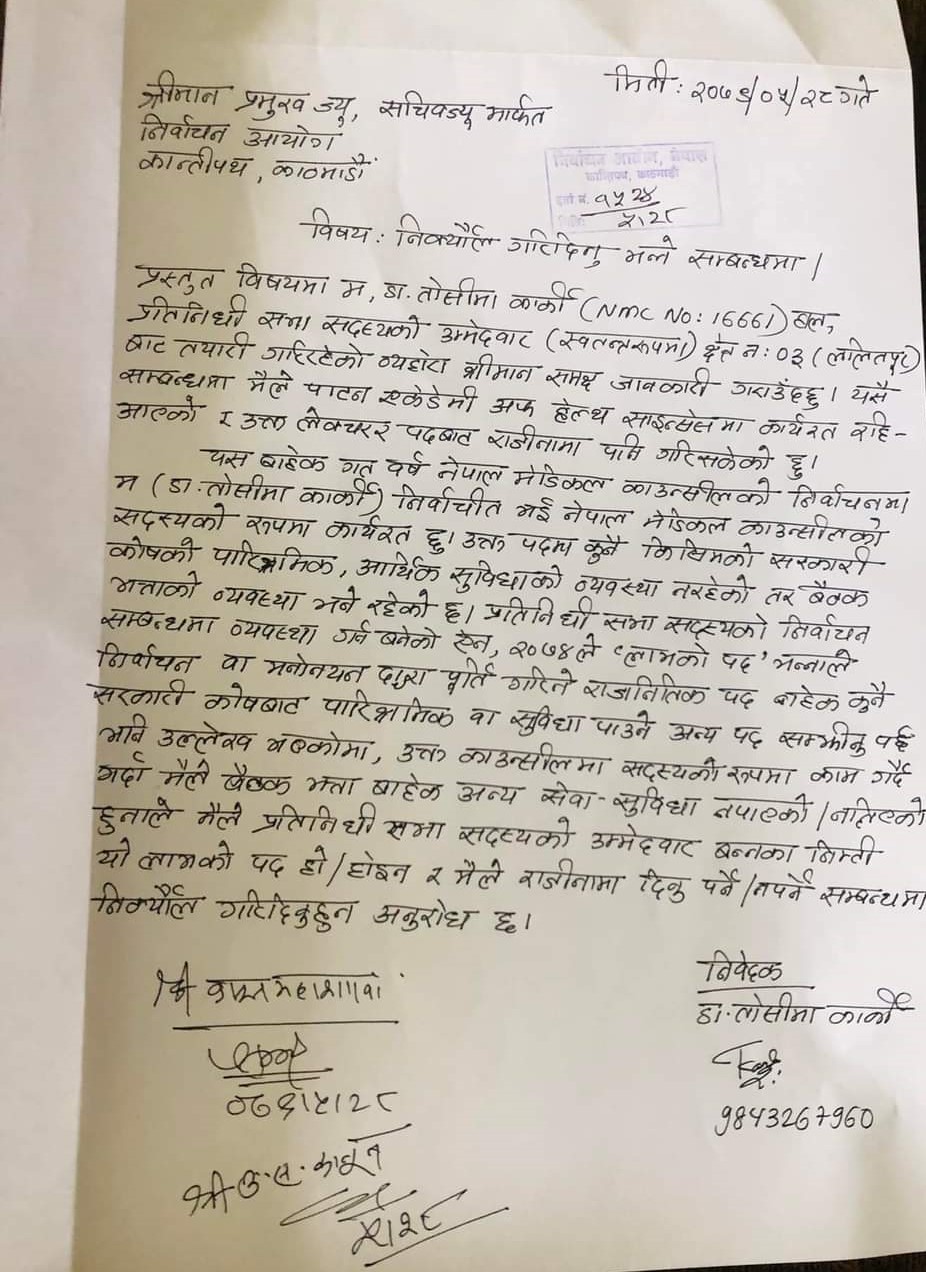 मिती : २०७९/०५/२८ गते
श्रीमान प्रमुख ज्यू, सचिवज्यू मार्फत
निर्वाचन आयोग
कान्तीपथ, काठमाडौं
निर्वाचन आयोग, नेपाल
कान्तिपथ, काठमाडौं
दर्ता नं. १५२४
५/२८
विषय : निर्क्यौल गरिदिनु भन्ने सम्बन्धमा ।
प्रस्तुत विषयमा म, डा. तोसीमा कार्की (NMC No: 16661)
प्रतिनिधी सभा सदस्यको उम्मेदवार (स्वतन्त्ररूपमा) क्षेत्र नं: ०३ (ललितपुर)
बाट तयारी गरिरहेको व्यहोरा श्रीमान समक्ष जानकारी गराउँदछु। यसै
सम्बन्धमा मैले पाटन एकेडेमी अफ हेल्थ साइन्सेसमा कार्यरत रहि-
आएको र उक्त लेक्चरर पदबाट राजीनामा पनि गरिसकेको छु।
यस बाहेक गत वर्ष नेपाल मेडिकल काउन्सीलको निर्वाचनमा
म (डा. तोसीमा कार्की) निर्वाचीत भई नेपाल मेडिकल काउन्सीलको
सदस्यको रूपमा कार्यरत छु। उक्त पदमा कुनै किसिमको सरकारी
कोषको पारिश्रमिक, आर्थिक सुविधाको व्यवस्था नरहेको तर बैठक
भत्ताको व्यवस्था भने रहेको छ। प्रतिनिधी सभा सदस्यको निर्वाचन
सम्बन्धमा व्यवस्था गर्न बनेको ऐन, २०७४ले 'लाभको पद' भन्नाले
निर्वाचन वा मनोनयन द्वारा पूर्ति गरिने राजनितिक पद बाहेक कुनै
सरकारी कोषबाट पारिश्रमिक वा सुविधा पाउने अन्य पद सम्झीनु पर्छ
भनि उल्लेख भएकोमा, उक्त काउन्सीलमा सदस्यको रूपमा काम गर्दै
गर्दा मैले बैठक भत्ता बाहेक अन्य सेवा-सुविधा नपाएको/नलिएको
हुनाले मैले प्रतिनिधी सभा सदस्यको उम्मेदवार बन्नका निम्ती
यो लाभको पद हो/होइन र मैले राजीनामा दिनु पर्ने/नपर्ने सम्बन्धमा
निर्क्यौल गरिदिनुहुन अनुरोध छ।
निवेदक
डा. तोसीमा कार्की
9843267960
श्री कानून महाशाखा
०७९/५/२८
श्री उ.स. कानून
५/२८